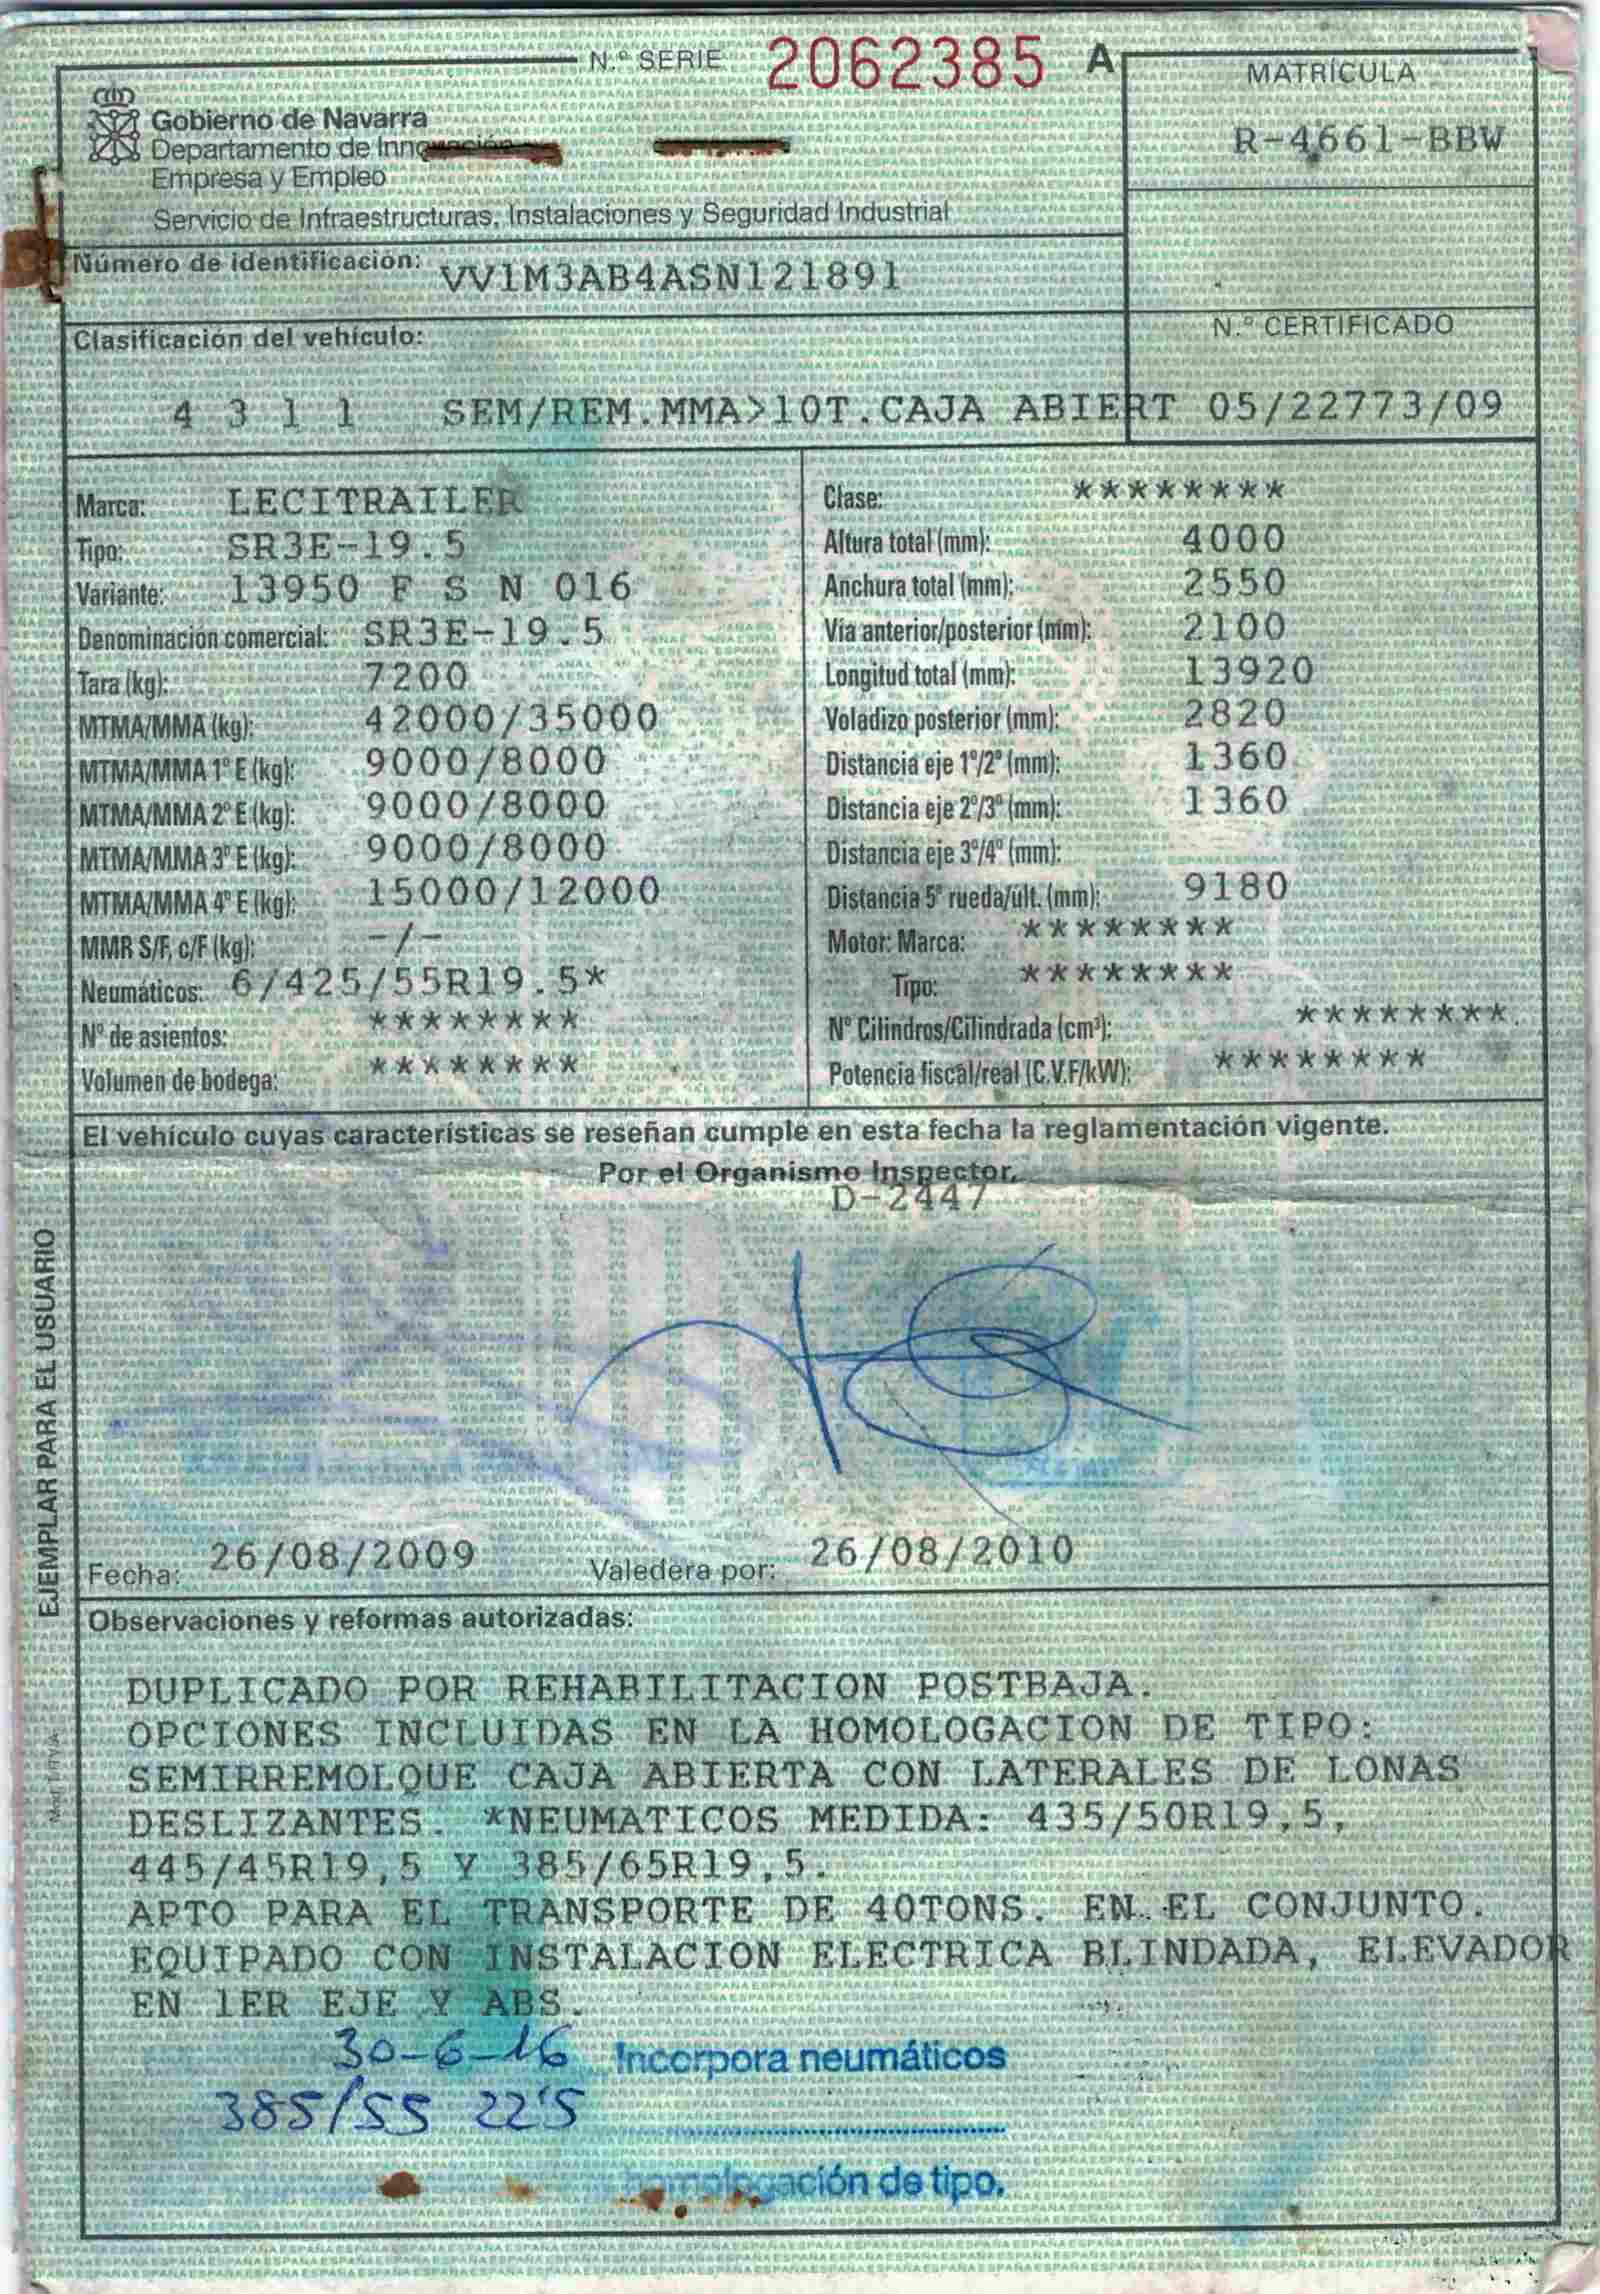 N.º SERIE 2062385 A
MATRÍCULA
R-4661-BBW
Gobierno de Navarra
Departamento de Innovación
Empresa y Empleo
Servicio de Infraestructuras, Instalaciones y Seguridad Industrial
Número de identificación: VV1M3AB4ASN121891
Clasificación del vehículo:
N.º CERTIFICADO
4 3 1 1 SEM/REM.MMA>10T.CAJA ABIERT 05/22773/09
Marca: LECITRAILER
Tipo: SR3E-19.5
Variante: 13950 F S N 016
Denominación comercial: SR3E-19.5
Tara (kg): 7200
MTMA/MMA (kg): 42000/35000
MTMA/MMA 1º E (kg): 9000/8000
MTMA/MMA 2º E (kg): 9000/8000
MTMA/MMA 3º E (kg): 9000/8000
MTMA/MMA 4º E (kg): 15000/12000
MMR S/F, c/F (kg): -/-
Neumáticos: 6/425/55R19.5*
Nº de asientos: ********
Volumen de bodega: ********
Clase: ********
Altura total (mm): 4000
Anchura total (mm): 2550
Vía anterior/posterior (mm): 2100
Longitud total (mm): 13920
Voladizo posterior (mm): 2820
Distancia eje 1º/2º (mm): 1360
Distancia eje 2º/3º (mm): 1360
Distancia eje 3º/4º (mm):
Distancia 5ª rueda/últ. (mm): 9180
Motor: Marca: ********
Tipo: ********
Nº Cilindros/Cilindrada (cm³): ********
Potencia fiscal/real (C.V.F/kW): ********
El vehículo cuyas características se reseñan cumple en esta fecha la reglamentación vigente.
Por el Organismo Inspector,
D-2447
Fecha: 26/08/2009 Valedera por: 26/08/2010
EJEMPLAR PARA EL USUARIO
Observaciones y reformas autorizadas:
DUPLICADO POR REHABILITACION POSTBAJA.
OPCIONES INCLUIDAS EN LA HOMOLOGACION DE TIPO:
SEMIRREMOLQUE CAJA ABIERTA CON LATERALES DE LONAS
DESLIZANTES. *NEUMATICOS MEDIDA: 435/50R19,5,
445/45R19,5 Y 385/65R19,5.
APTO PARA EL TRANSPORTE DE 40TONS. EN EL CONJUNTO.
EQUIPADO CON INSTALACION ELECTRICA BLINDADA, ELEVADOR
EN 1ER EJE Y ABS.
30-6-16 Incorpora neumáticos
385/55 22'5
homologación de tipo.